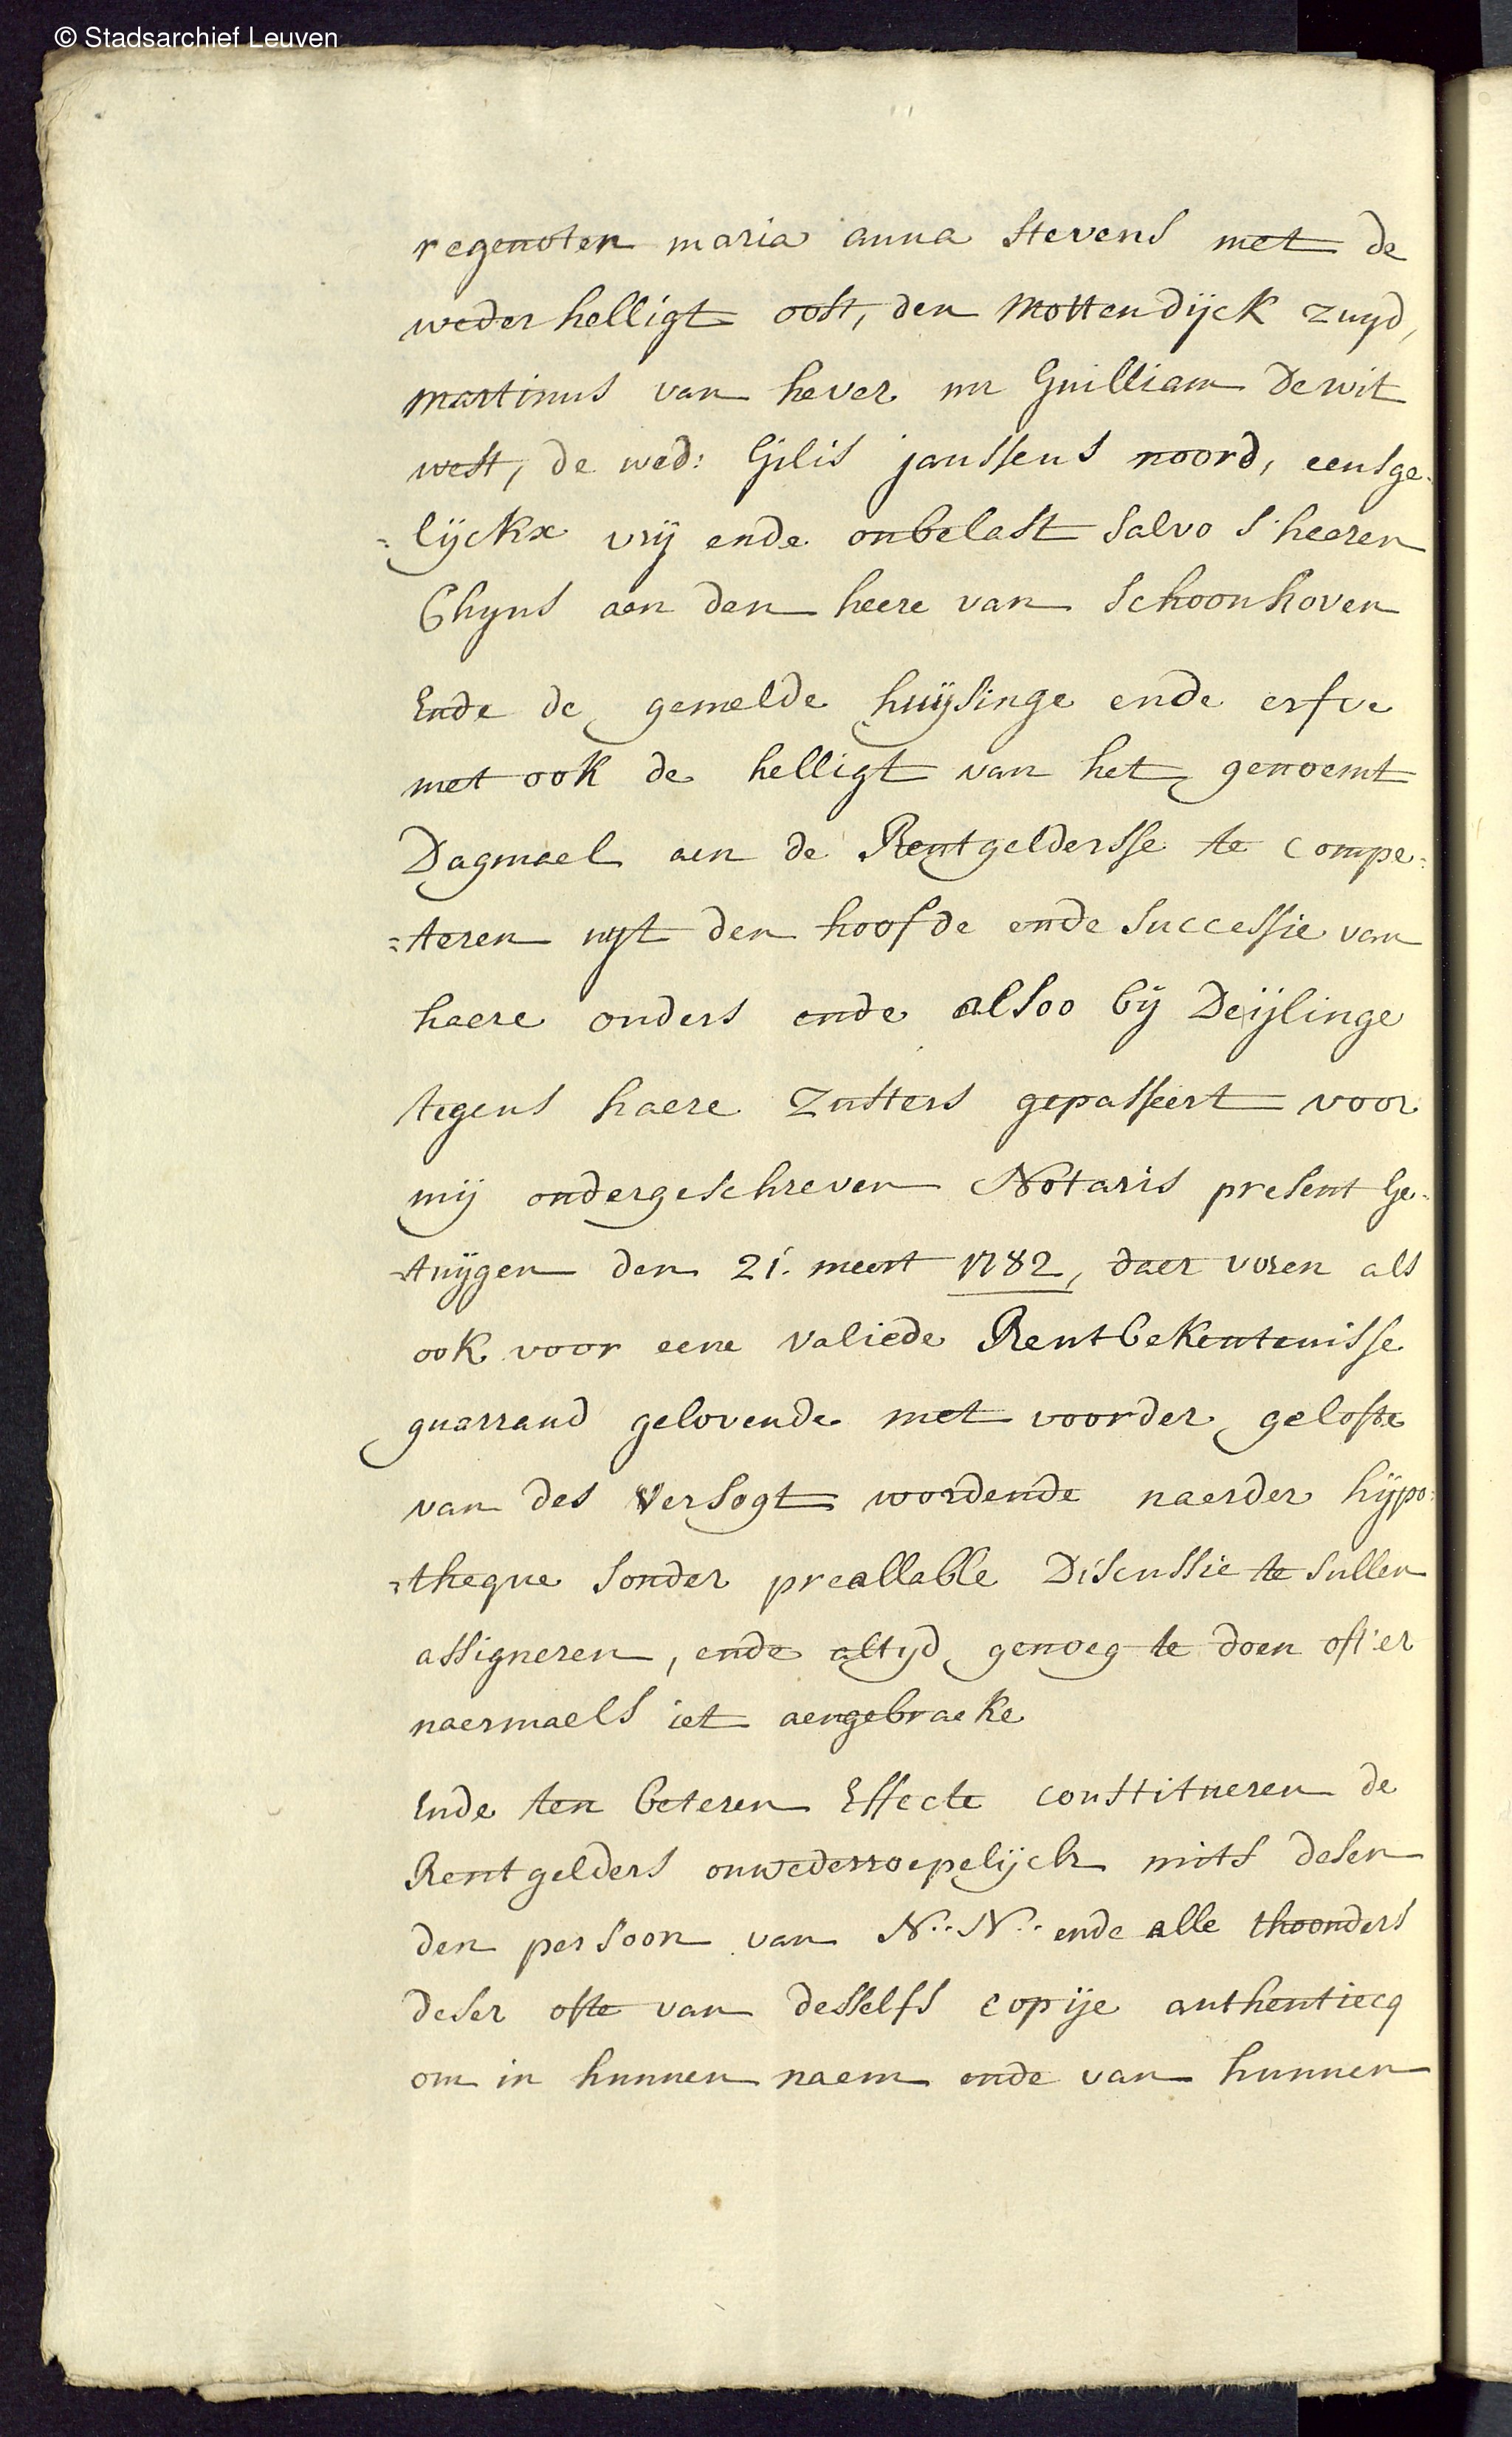 © Stadsarchief Leuven
regenoten maria anna Stevens met de
wederhelligt oost, den Mottendijck zuyd,
Martinus van hever nu Guilliam Dewit
west, de wed: Gilis janssens noord, eensge-
=lijckx vrij ende onbelast salvo s'heeren
Chyns aen den heere van Schoonhoven
Ende de gemelde huijsinge ende erfve
met ook de helligt van het genoemt
Dagmael aen de Rentgeldersse te compe=
=teren uyt den hoofde ende successie van
haere ouders ende alsoo bij Deijlinge
tegens haere Zusters gepasseert voor
mij ondergeschreven Notaris present Ge-
-tuijgen den 21. meert 1782, daer voren als
ook voor eene valiede Rentbekentenisse
guarrand gelovende met voorder gelofte
van des versogt wordende naerder hijpo=
=theque sonder preallable Discussie te sullen
assigneren, ende altyd genoeg te doen oft'er
naermaels iet aengebraeke
Ende ten beteren Effecte constitueren de
Rentgelders onwederroepelijck mits desen
den persoon van N.. N.. ende alle thoonders
deser ofte van desselfs copije authentiecq
om in hunnen naem ende van hunnen